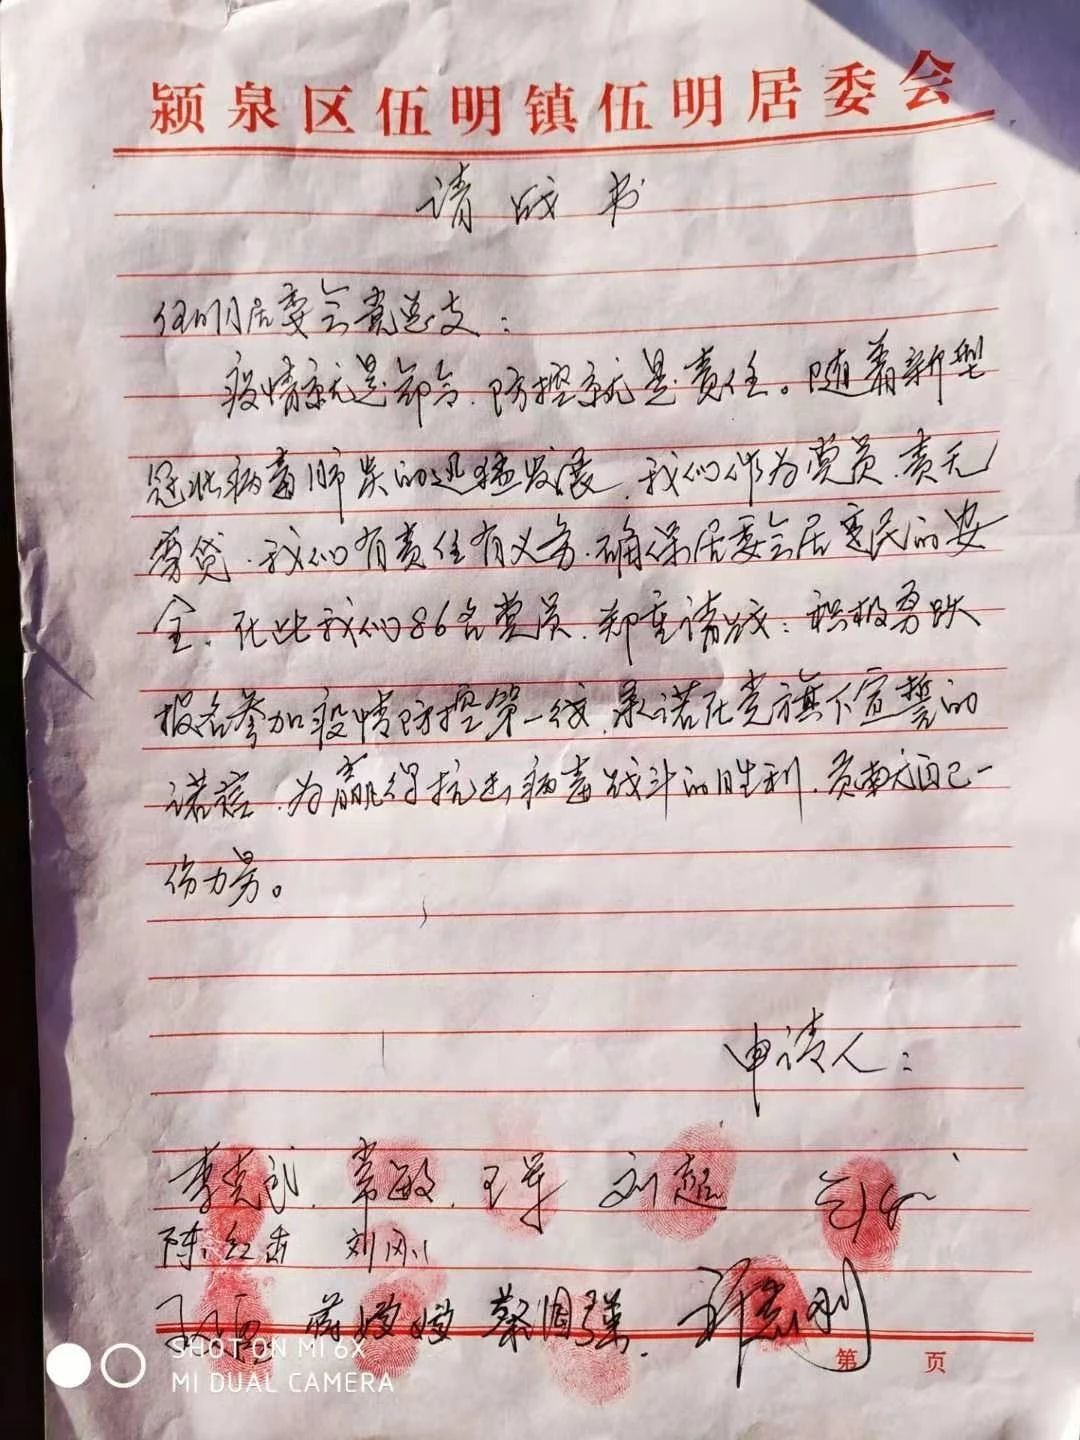 颍泉区伍明镇伍明居委会
请战书
伍明居委会党总支：
疫情就是命令，防控就是责任。随着新型
冠状病毒肺炎的迅猛发展，我们作为党员，责无
旁贷，我们有责任有义务，确保居委会居民的安
全，在此我们86名党员，郑重请战：积极勇跃
报名参加疫情防控第一线，承诺在党旗下宣誓的
诺言，为赢得抗击病毒战斗的胜利，贡献自己一
份力量。
申请人：
李克武 常敏 王军 刘超
陈红杰 刘刚
蒋嫚嫚 蔡国强 许志刚
第 页
SHOT ON MI 6X
MI DUAL CAMERA